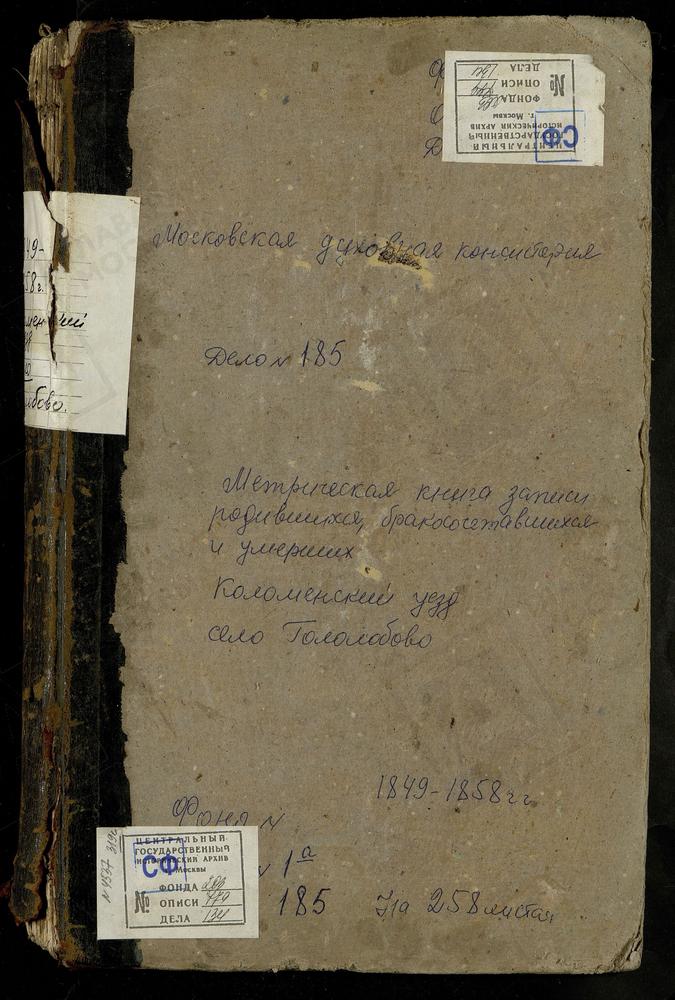 ЦЕНТРАЛЬНЫЙ
ГОСУДАРСТВЕННЫЙ
ИСТОРИЧЕСКИЙ АРХИВ
г. Москвы
СФ
ФОНДА 203
№ ОПИСИ
ДЕЛА
49-
58г.
ский
бово.
Московская духовная консистория
Дело № 185
Метрическая книга записи
родившихся, бракосочетавшихся
и умерших
Коломенский уезд
село Гололобово
1849-1858 гг
Фонд №
№ 1а
185 На 258 листах
ЦЕНТРАЛЬНЫЙ
ГОСУДАРСТВЕННЫЙ
ИСТОРИЧЕСКИЙ АРХИВ
г. Москвы
СФ
ФОНДА 203
№ ОПИСИ
ДЕЛА